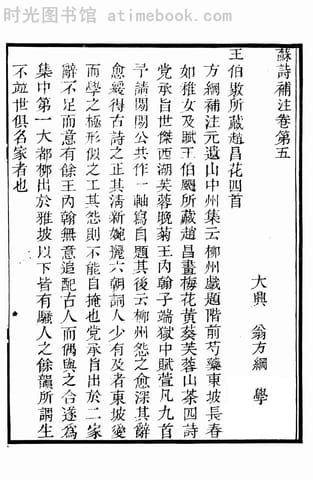 时光图书馆 atimebook.com
蘇詩補注卷第五
大興 翁方綱 學
王伯敭所藏趙昌花四首
方綱補注元遺山中州集云柳州戲題階前芍藥東坡長春
如稚女及賦王伯颺所藏趙昌畫梅花黃葵芙蓉山茶四詩
党承旨世傑西湖芙蓉晚菊王内翰子端獄中賦萱凡九首
予請閑閑公共作一軸寫自題其後云柳州怨之愈深其辭
愈緩得古詩之正其清新婉麗六朝詞人少有及者東坡愛
而學之極形似之工其怨則不能自掩也党承旨出於二家
辭不足而意有餘王内翰無意追配古人而偶與之合遂為
集中第一大都柳出於雅坡以下皆有騷人之餘韻所謂生
不竝世俱名家者也